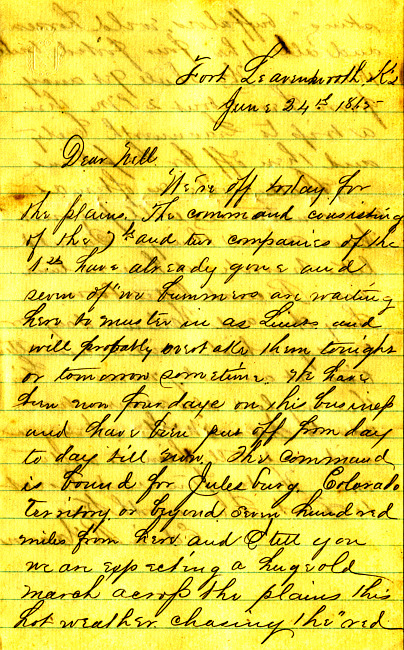 Fort Leavenworth Ks
June 24th 1865
Dear Nell
We're off today for
the plains. The command consisting
of the 7th and two companies of the
1st have already gone and
seven of "we bummers are waiting
here to muster in as Lieuts and
will probably overtake them tonight
or tomorrow sometime. We have
been now four days on this business
and have been put off from day
to day till now. The command
is bound for Julesburg, Colorado
Territory or beyond seven hundred
miles from here and I tell you
we are expecting a huge old
march across the plains this
hot weather chasing the "red